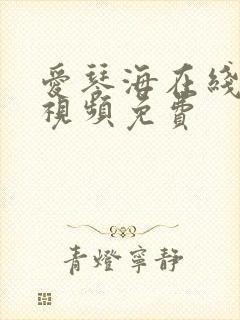 愛琴海在綫
視頻免費
青燈寧靜